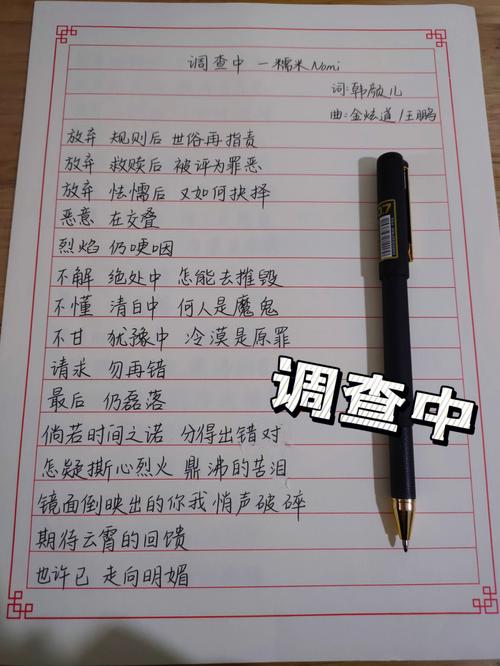 调查中 一糯米Nomi
词:韩颜儿
曲:金炫道/王鹏
放弃 规则后 世俗再指责
放弃 救赎后 被评为罪恶
放弃 怯懦后 又如何抉择
恶意 在交叠
烈焰 仍哽咽
不解 绝处中 怎能去摧毁
不懂 清白中 何人是魔鬼
不甘 犹豫中 冷漠是原罪
请求 勿再错
最后 仍磊落
倘若时间之诺 分得出错对
怎疑撕心烈火 鼎沸的苦泪
镜面倒映出的你我悄声破碎
期待云霄的回馈
也许已 走向明媚
调查中